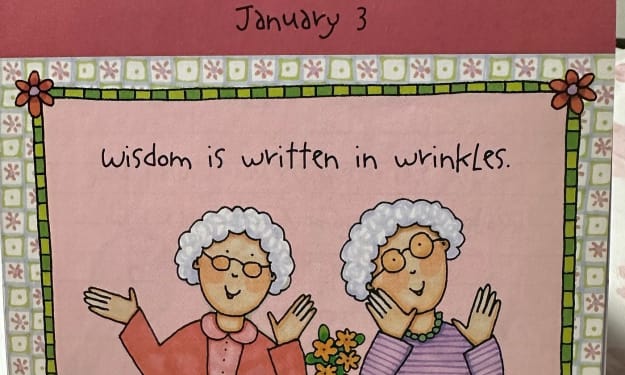 January 3
wisdom is written in wrinkles.